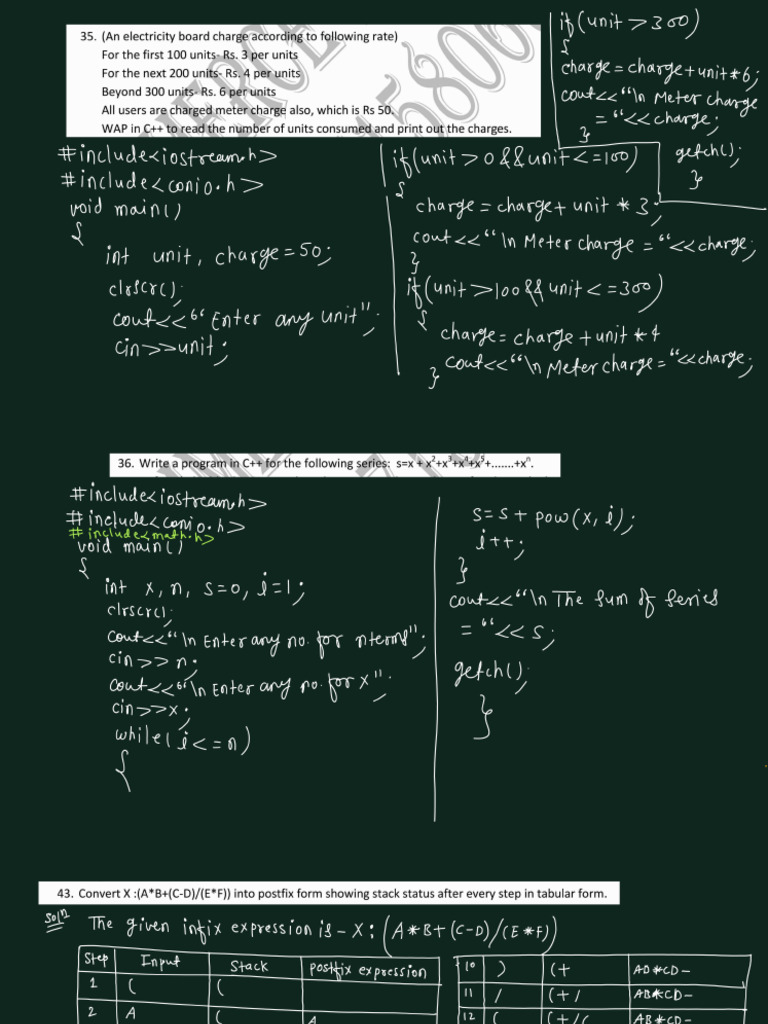 35. (An electricity board charge according to following rate)
For the first 100 units- Rs. 3 per units
For the next 200 units- Rs. 4 per units
Beyond 300 units- Rs. 6 per units
All users are charged meter charge also, which is Rs 50.
WAP in C++ to read the number of units consumed and print out the charges.
#include<iostream.h>
#include<conio.h>
void main()
{
int unit, charge=50;
clrscr();
cout<<"Enter any unit";
cin>>unit;
if(unit>0&&unit<=100)
{
charge=charge+unit*3;
cout<<"\n Meter charge="<<charge;
}
if(unit>100&&unit<=300)
{
charge=charge+unit*4
cout<<"\n Meter charge="<<charge;
}
if(unit>300)
{
charge=charge+unit*6;
cout<<"\n Meter charge
="<<charge;
}
getch();
}
36. Write a program in C++ for the following series: s=x + x²+x³+x⁴+x⁵+.......+xⁿ.
#include<iostream.h>
#include<conio.h>
#include<math.h>
void main()
{
int x, n, s=0, i=1;
clrscr();
cout<<"\n Enter any no. for nterms";
cin>>n;
cout<<"\n Enter any no. for x";
cin>>x;
while(i<=n)
{
s=s+pow(x,i);
i++;
}
cout<<"\n The sum of series
="<<s;
getch();
}
43. Convert X :(A*B+(C-D)/(E*F)) into postfix form showing stack status after every step in tabular form.
Solⁿ The given infix expression is - X: (A*B+(C-D)/(E*F))
Step Input Stack postfix expression
1 ( (
2 A ( A
10 ) (+ AB*CD-
11 / (+/ AB*CD-
12 ( (+/( AB*CD-